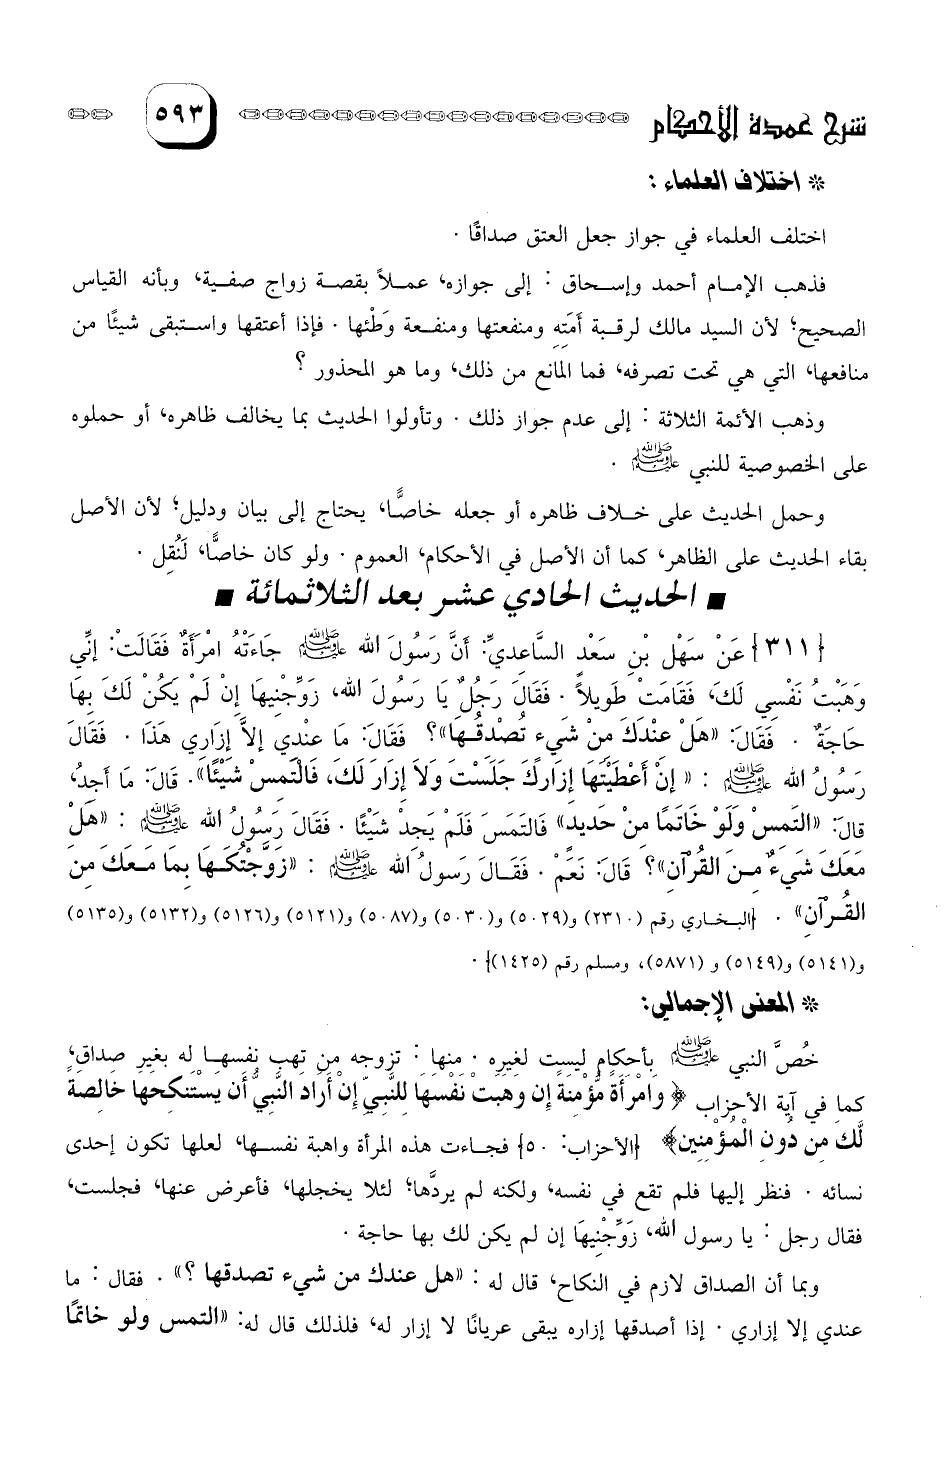 شرح عمدة الأحكام ٥٩٣
* اختلاف العلماء :
اختلف العلماء في جواز جعل العتق صداقًا .
فذهب الإمام أحمد وإسحاق : إلى جوازه، عملاً بقصة زواج صفية، وبأنه القياس
الصحيح؛ لأن السيد مالك لرقبة أَمَتِه ومنفعتها ومنفعة وَطْئها . فإذا أعتقها واستبقى شيئًا من
منافعها، التي هي تحت تصرفه، فما المانع من ذلك، وما هو المحذور ؟
وذهب الأئمة الثلاثة : إلى عدم جواز ذلك . وتأولوا الحديث بما يخالف ظاهره، أو حملوه
على الخصوصية للنبي ﷺ .
وحمل الحديث على خلاف ظاهره أو جعله خاصًّا، يحتاج إلى بيان ودليل؛ لأن الأصل
بقاء الحديث على الظاهر، كما أن الأصل في الأحكام، العموم . ولو كان خاصًّا، لَنُقل .
■ الحديث الحادي عشر بعد الثلاثمائة ■
{٣١١} عَنْ سَهْلِ بْنِ سَعْدٍ السَّاعديِّ: أَنَّ رَسُولَ الله ﷺ جَاءَتْهُ امْرَأَةٌ فَقَالَتْ: إنِّي
وَهَبْتُ نَفْسي لَكَ، فَقَامَتْ طَويلاً . فَقَالَ رَجُلٌ يَا رَسُولَ الله، زَوِّجْنِيهَا إنْ لَمْ يَكُنْ لَكَ بِهَا
حَاجَةٌ . فَقَالَ: «هَلْ عنْدَكَ منْ شَيء تُصْدقُهَا»؟ فَقَالَ: مَا عنْدي إلاَّ إزَاري هَذَا . فَقَالَ
رَسُولُ الله ﷺ : « إنْ أَعْطَيْتَهَا إزَارَكَ جَلَسْتَ وَلاَ إزَارَ لَكَ، فَالْتَمسْ شَيْئًا». قَالَ: مَا أَجدُ،
قالَ: «الْتَمسْ وَلَوْ خَاتَمًا منْ حَديد» فَالتَمَسَ فَلَمْ يَجدْ شَيْئًا . فَقَالَ رَسُولُ الله ﷺ : «هَلْ
مَعَكَ شَيءٌ منَ القُرآن»؟ قَالَ: نَعَمْ . فَقَالَ رَسولُ الله ﷺ : «زَوَّجْتُكَهَا بمَا مَعَكَ منَ
القُرآن» . {البخاري رقم (٢٣١٠) و(٥٠٢٩) و(٥٠٣٠) و(٥٠٨٧) و(٥١٢١) و(٥١٢٦) و(٥١٣٢) و(٥١٣٥)
و(٥١٤١) و(٥١٤٩) و (٥٨٧١)، ومسلم رقم (١٤٢٥)} .
* المعنى الإجمالي:
خُصَّ النبي ﷺ بأحكامٍ ليست لغيره . منها : تزوجه من تهب نفسها له بغير صداق،
كما في آية الأحزاب ﴿ وامْرأَة مُؤْمنةً إن وهبت نفْسها للنَّبيّ إنْ أراد النَّبيُّ أن يستنكحها خالصة
لَّك من دُون الْمُؤْمنين﴾ {الأحزاب: ٥٠} فجاءت هذه المرأة واهبة نفسها، لعلها تكون إحدى
نسائه . فنظر إليها فلم تقع في نفسه، ولكنه لم يردَّها؛ لئلا يخجلها، فأعرض عنها، فجلست،
فقال رجل : يا رسول الله، زَوِّجْنِيهَا إن لم يكن لك بها حاجة .
وبما أن الصداق لازم في النكاح، قال له : «هل عندك من شيء تصدقها ؟» . فقال : ما
عندي إلا إزاري . إذا أصدقها إزاره يبقى عريانًا لا إزار له، فلذلك قال له: «التمس ولو خاتمًا